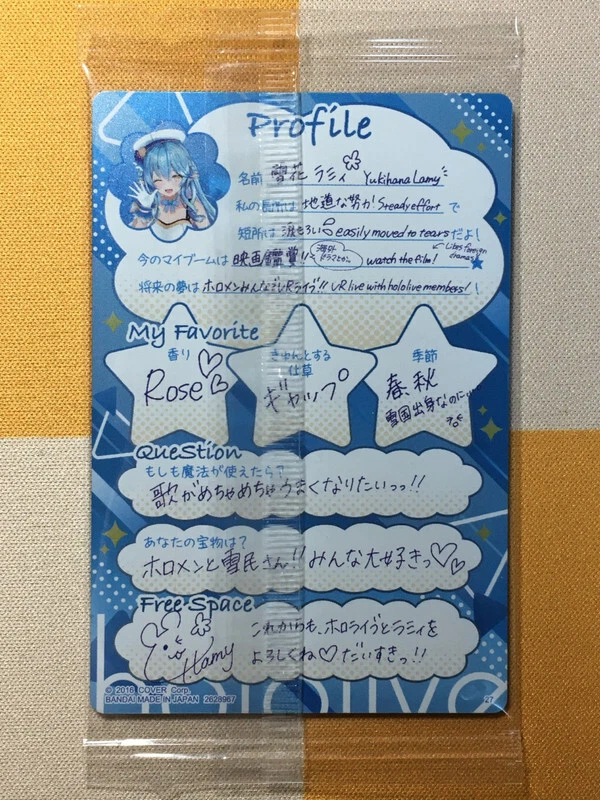 Profile
名前 雪花 ラミィ Yukihana Lamy
私の長所は 地道な努力! Steady effort で
短所は 涙もろい easily moved to tears だよ!
今のマイブームは 映画鑑賞!! 海外ドラマとか。 watch the film! Likes foreign dramas!
将来の夢は ホロメンみんなでVRライブ!! VR live with hololive members! !
My Favorite
香り
Rose
きゅんとする
仕草
ギャップ
季節
春秋
雪国出身なのに…
Question
もしも魔法が使えたら?
歌がめちゃめちゃうまくなりたいっっ!!
あなたの宝物は?
ホロメンと雪民さん!! みんな大好きっ
Free Space
これからも、ホロライブとラミィを
よろしくね♡だいすきっ!!
Lamy
© 2016 COVER Corp.
BANDAI MADE IN JAPAN 2628967
27
hololive